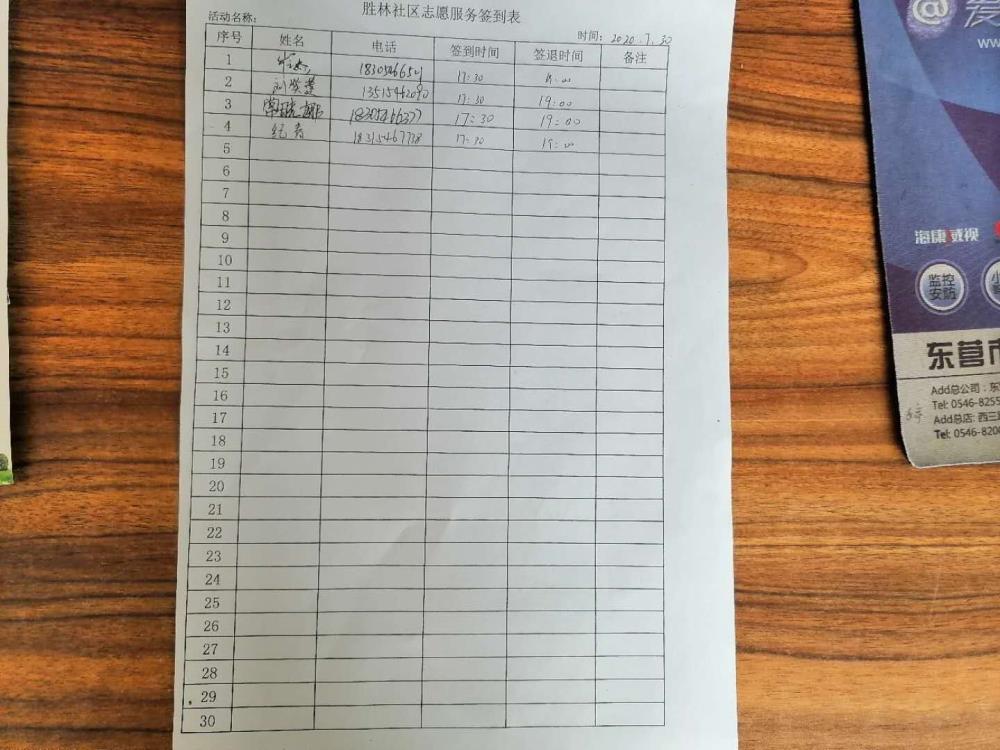 胜林社区志愿服务签到表
活动名称：
时间：2020.7.30
序号 姓名 电话 签到时间 签退时间 备注
1 17:30
2 17:30 19:00
3 17:30 19:00
4 纪春 18315467738 17:30 19:00
5
6
7
8
9
10
11
12
13
14
15
16
17
18
19
20
21
22
23
24
25
26
27
28
29
30
@
www
海康威视
监控
安防
东营市
Add总公司：东
Tel: 0546-8255
Add总店: 西三
Tel: 0546-820